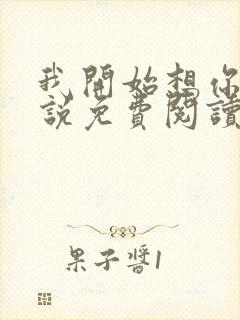 我開始想你
說免費閱讀
果子醬1